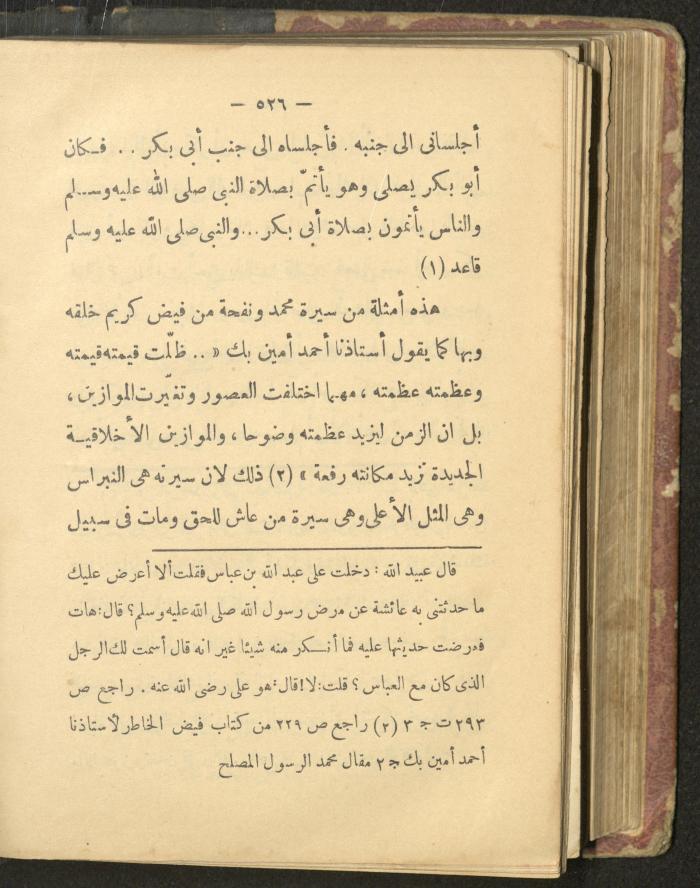 — ٥٢٦ —
أجلسانى الى جنبه . فأجلساه الى جنب أبى بكر . . فكان
أبو بكر يصلى وهو يأتمّ بصلاة النبى صلى الله عليه وسلم
والناس يأتمون بصلاة أبى بكر... والنبى صلى الله عليه وسلم
قاعد (١)
هذه أمثلة من سيرة محمد ونفحة من فيض كريم خلقه
وبها كما يقول أستاذنا احمد أمين بك « .. ظلّت قيمته قيمته
وعظمته عظمته ، مهما اختلفت العصور وتغيّرت الموازين ،
بل ان الزمن ليزيد عظمته وضوحا ، والموازين الأخلاقية
الجديدة تزيد مكانته رفعة » (٢) ذلك لان سيرته هى النبراس
وهى المثل الأعلى وهى سيرة من عاش للحق ومات فى سبيل
قال عبيد الله : دخلت على عبد الله بن عباس فقلت ألا أعرض عليك
ما حدثتنى به عائشة عن مرض رسول الله صلى الله عليه وسلم؟ قال: هات
فعرضت حديثها عليه فما أنكر منه شيئا غير انه قال أسمت لك الرجل
الذى كان مع العباس ؟ قلت: لا! قال: هو على رضى الله عنه . راجع ص
٢٩٣ ت ج ٣ (٢) راجع ص ٢٢٩ من كتاب فيض الخاطر لأستاذنا
أحمد أمين بك ج ٢ مقال محمد الرسول المصلح